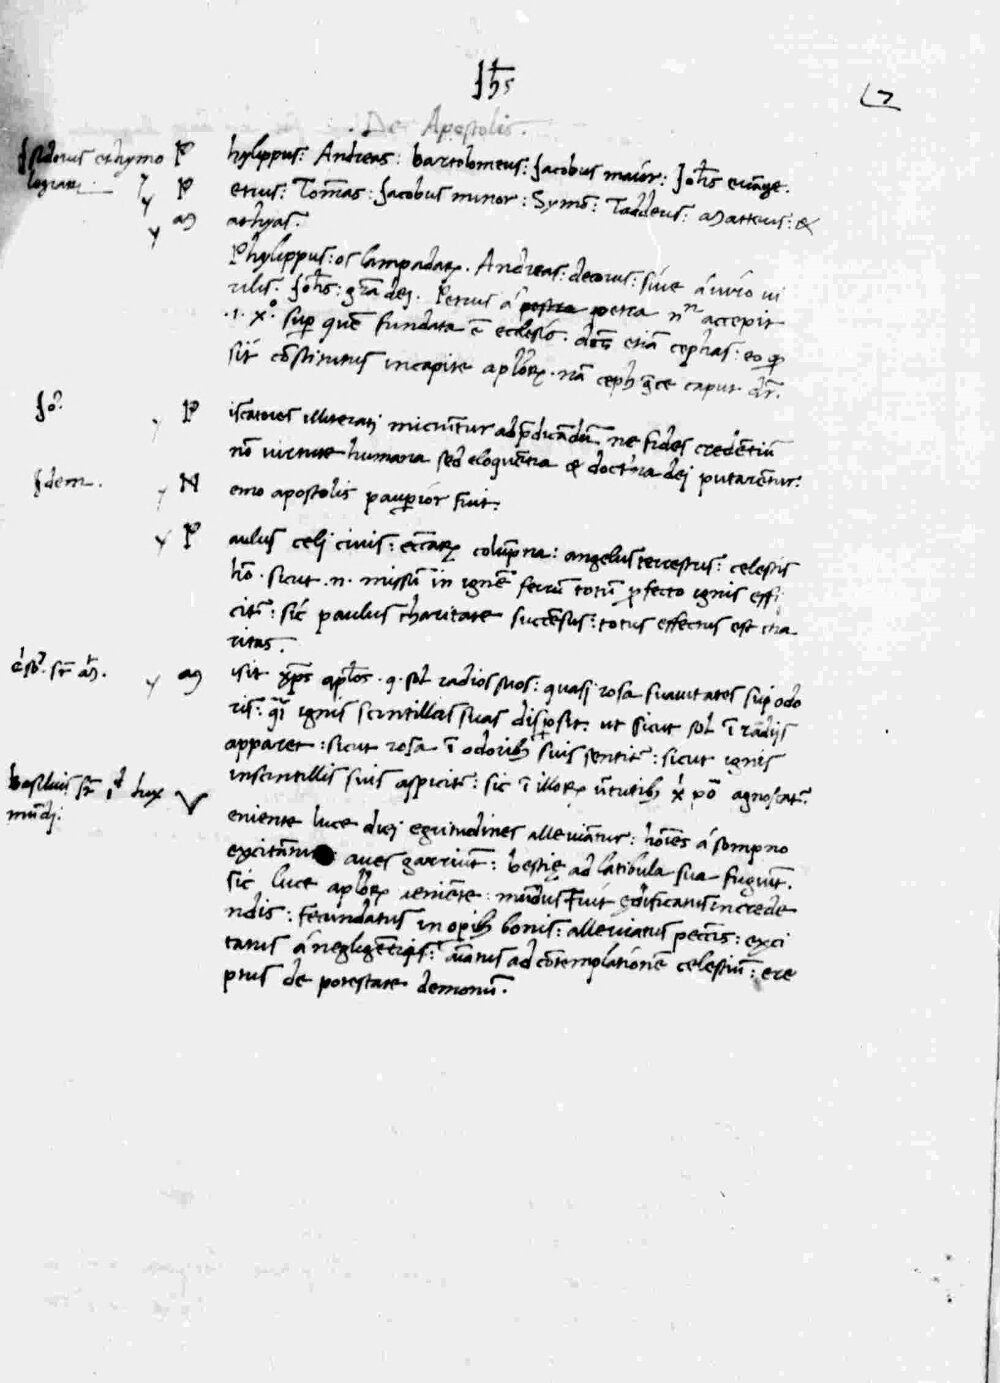 Jhs
De Apostolis.
Isidorus ethymo P hylippus: Andreas: bartolomeus: Jacobus maior: Johs euāge.
logiarꝝ P etrus: Tomas: Jacobus minor: Symō: Taddeus: Matteus: &
M athyas.
Phylippus: os lampadarꝝ. Andreas: decorus: siue a uiro ui
rilis. Johs: grā dej. Petrus á petra nn accepit
.i. xo. sup quē fundata ē ecclesia. etiā cephas: eo ꝙ
sit cōstitutus in capite aplorꝝ. nā ceph grece caput dr̄.
Jo. P iscatores illiterati mictūtur ad p̄dicandū. ne fides credētiū
nō uirtute humana sed eloquentia & doctrina dej putaretur.
Jdem. N emo apostolis pauperior fuit.
P aulus celj ciuis: eccārꝝ columpna: angelus terrestris: celestis
hō. sicut .n. missū in ignē ferrū totū profecto ignis effi
citr: sic paulus charitate succensus: totus effectus est cha
ritas.
M isit xps aplos. q. sol radios suos: quasj rosa suauitates sui odo
ris: qsi ignis scintillas suas dispersit: ut sicut sol ī radijs
apparet: sicut rosa ī odoribꝫ suis sentitr: sicut ignis
in scintillis suis aspicitr: sic ī illorꝝ uirtutibꝫ agnoscatr.
Basilius sr id lux V
mūdj. eniente luce diej egritudines alleuiantur: hoīes á sompno
excitantur aues garriunt: bestię ad latibula sua fugiunt.
sic luce aplorꝝ ueniēte: mūdus fuit ędificatus in crede
ndis: fecundatus in opibꝫ bonis: alleuiatus peccis: exci
tatus á negligētijs: ad cōtemplationē celestiū: ere
ptus de potestate demonū.